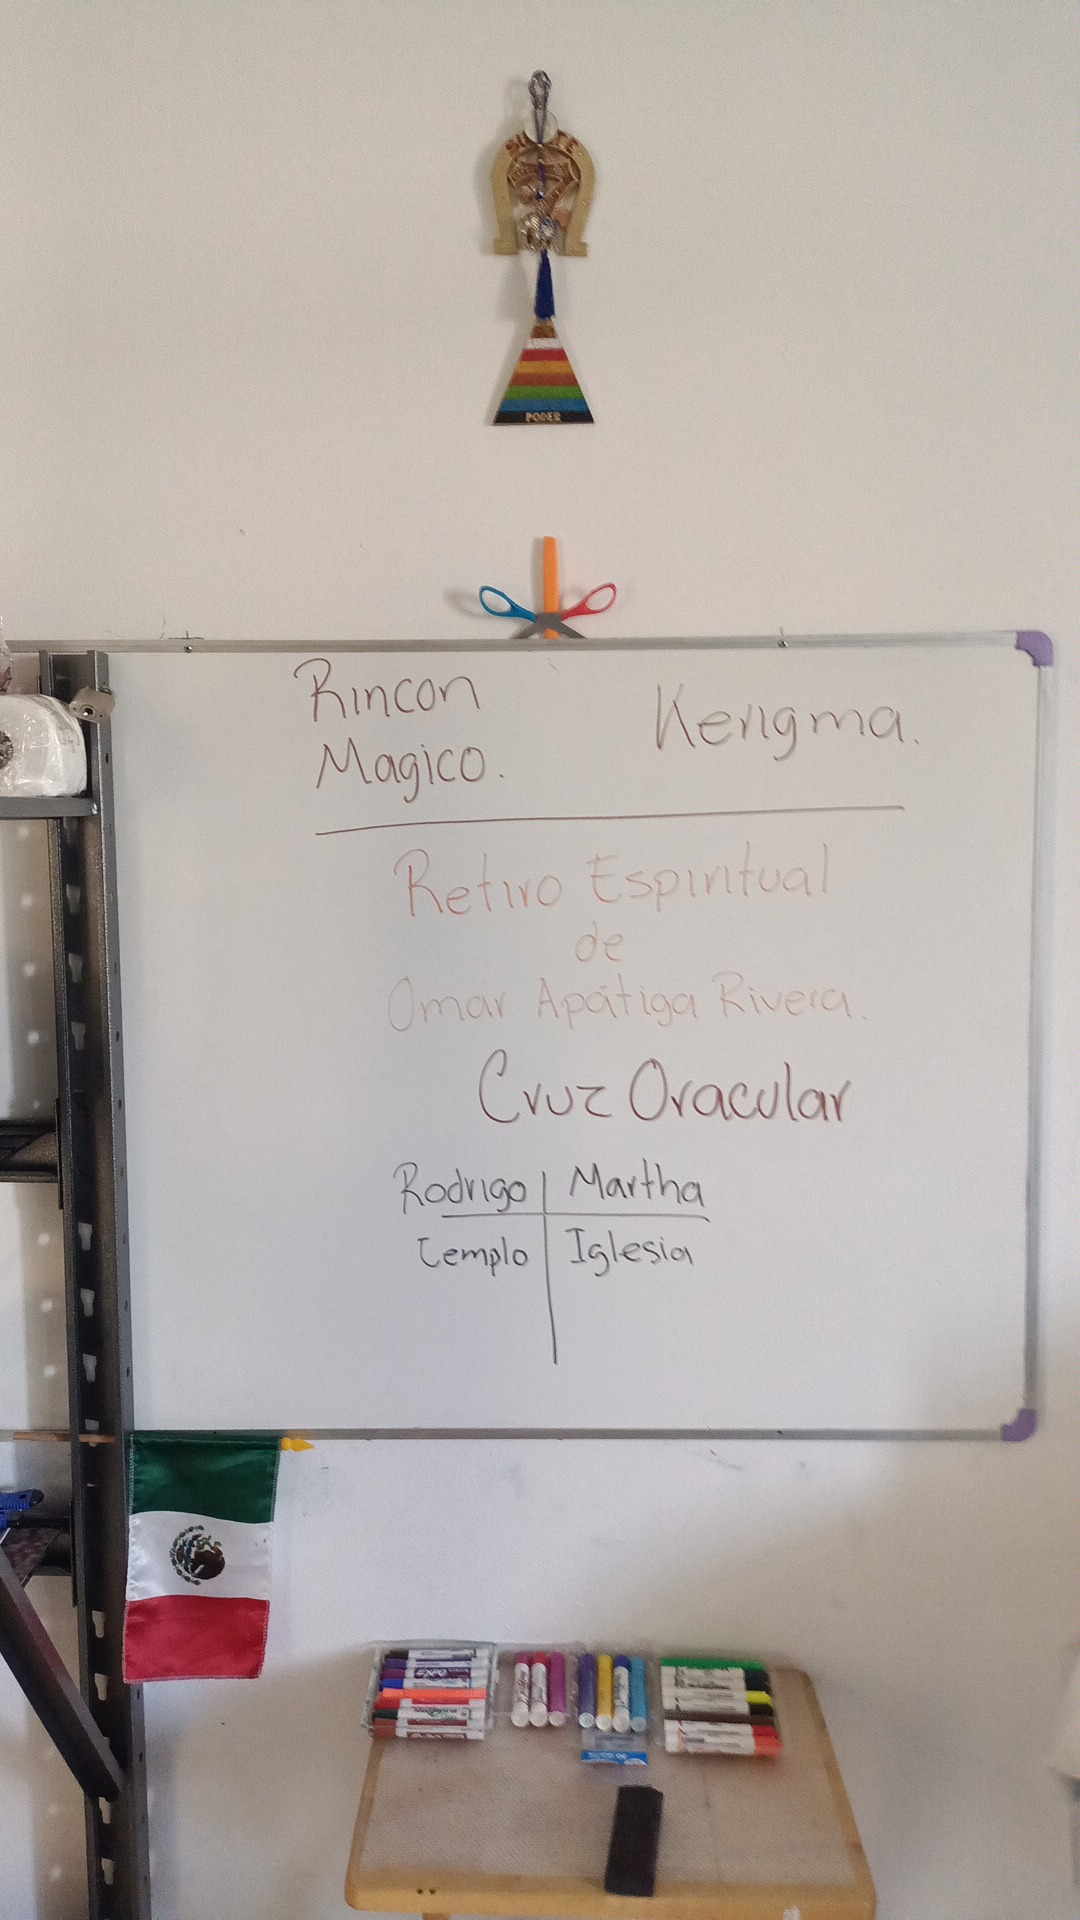 SUERTE
PODER
Rincon
Magico.
Kerigma.
Retiro Espiritual
de
Omar Apátiga Rivera.
Cruz Oracular
Rodrigo | Martha
Templo | Iglesia